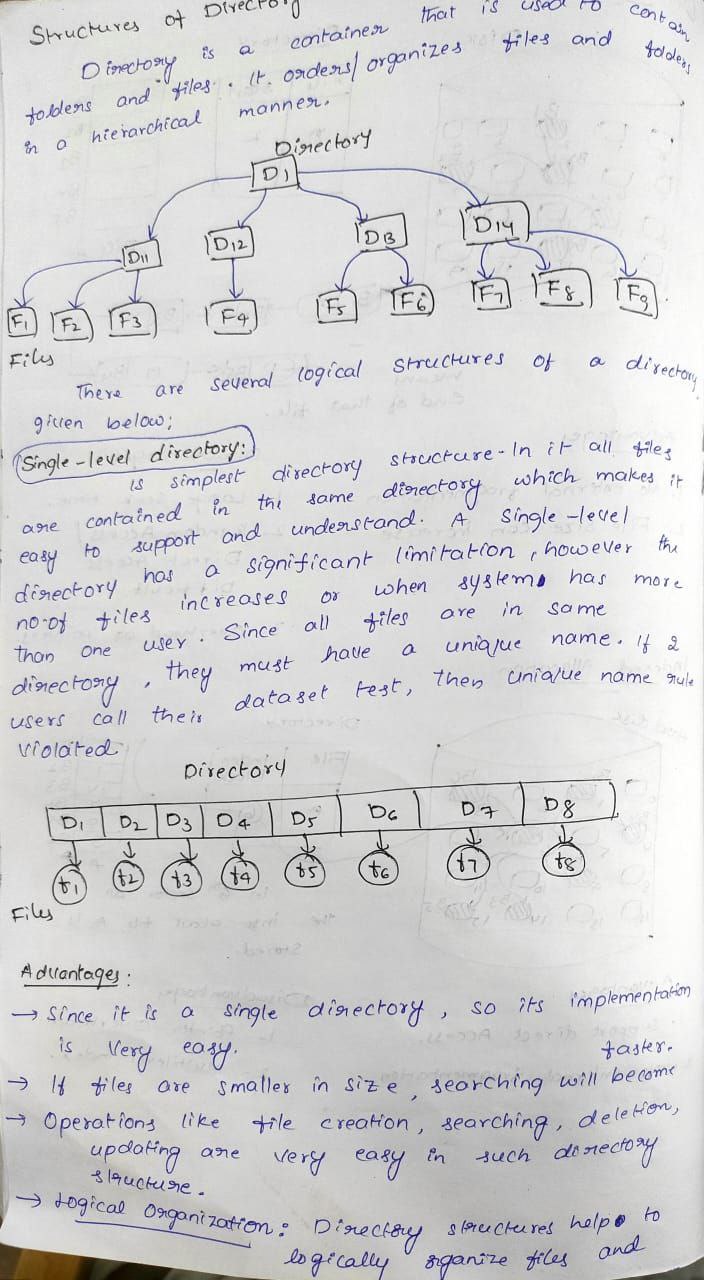 Structures of Directory
Directory is a container that is used to contain
folders and files. It orders/organizes files and folders
in a hierarchical manner.
Directory
D1
D11 D12 D13 D14
F1 F2 F3 F4 F5 F6 F7 F8 F9
Files
There are several logical structures of a directory
given below;
Single-level directory:
is simplest directory structure - In it all files
are contained in the same directory which makes it
easy to support and understand. A single-level
directory has a significant limitation, however the
no.of files increases or when system has more
than one user. Since all files are in same
directory, they must have a unique name. If 2
users call their dataset test, then unique name rule
violated.
Directory
D1 D2 D3 D4 D5 D6 D7 D8
f1 f2 f3 f4 f5 f6 f7 f8
Files
Advantages:
→ Since it is a single directory, so its implementation
is very easy.
→ If files are smaller in size, searching will become faster.
→ Operations like file creation, searching, deletion,
updating are very easy in such directory
structure.
→ Logical Organization: Directory structures help to
logically organize files and